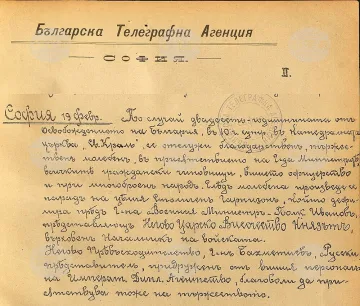 Българска Телеграфна Агенция
СОФИЯ.
II.
София 19 Февр. По случай двадесеть-годишнината отъ
освобождението на България, въ 10 ч. сутр. въ Катедрална
църква „Св. Краль“, се отслужи благодарственъ, тържес-
твенъ молебенъ, въ присѫтствието на Г-да Министрите,
всичките граждански чиновници, висшето офицерство
и при многоброенъ народъ. Слѣдъ молебена произведе се
парадъ на цѣлия столиченъ Гарнизонъ, който дефи-
лира прѣдъ Г-на Военния Министръ Полк. Ивановъ,
прѣдставляющъ Негово Царско Височество Князътъ,
върховенъ Началникъ на войската.
Негово Прѣвъсходителство, Г-нъ Бахметиевъ, Руски
прѣдставитель, придруженъ отъ висшия персоналъ
на Императ. Дипл. Агентство, благоволи да при-
сѫтствува тоже на тържеството.